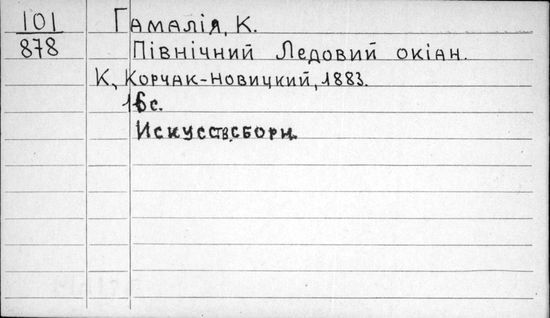 101 Гамалія, К.
878 Північний Ледовий окіан.
К, Корчак-Новицкий, 1883.
16с.
Искусств. сборн.